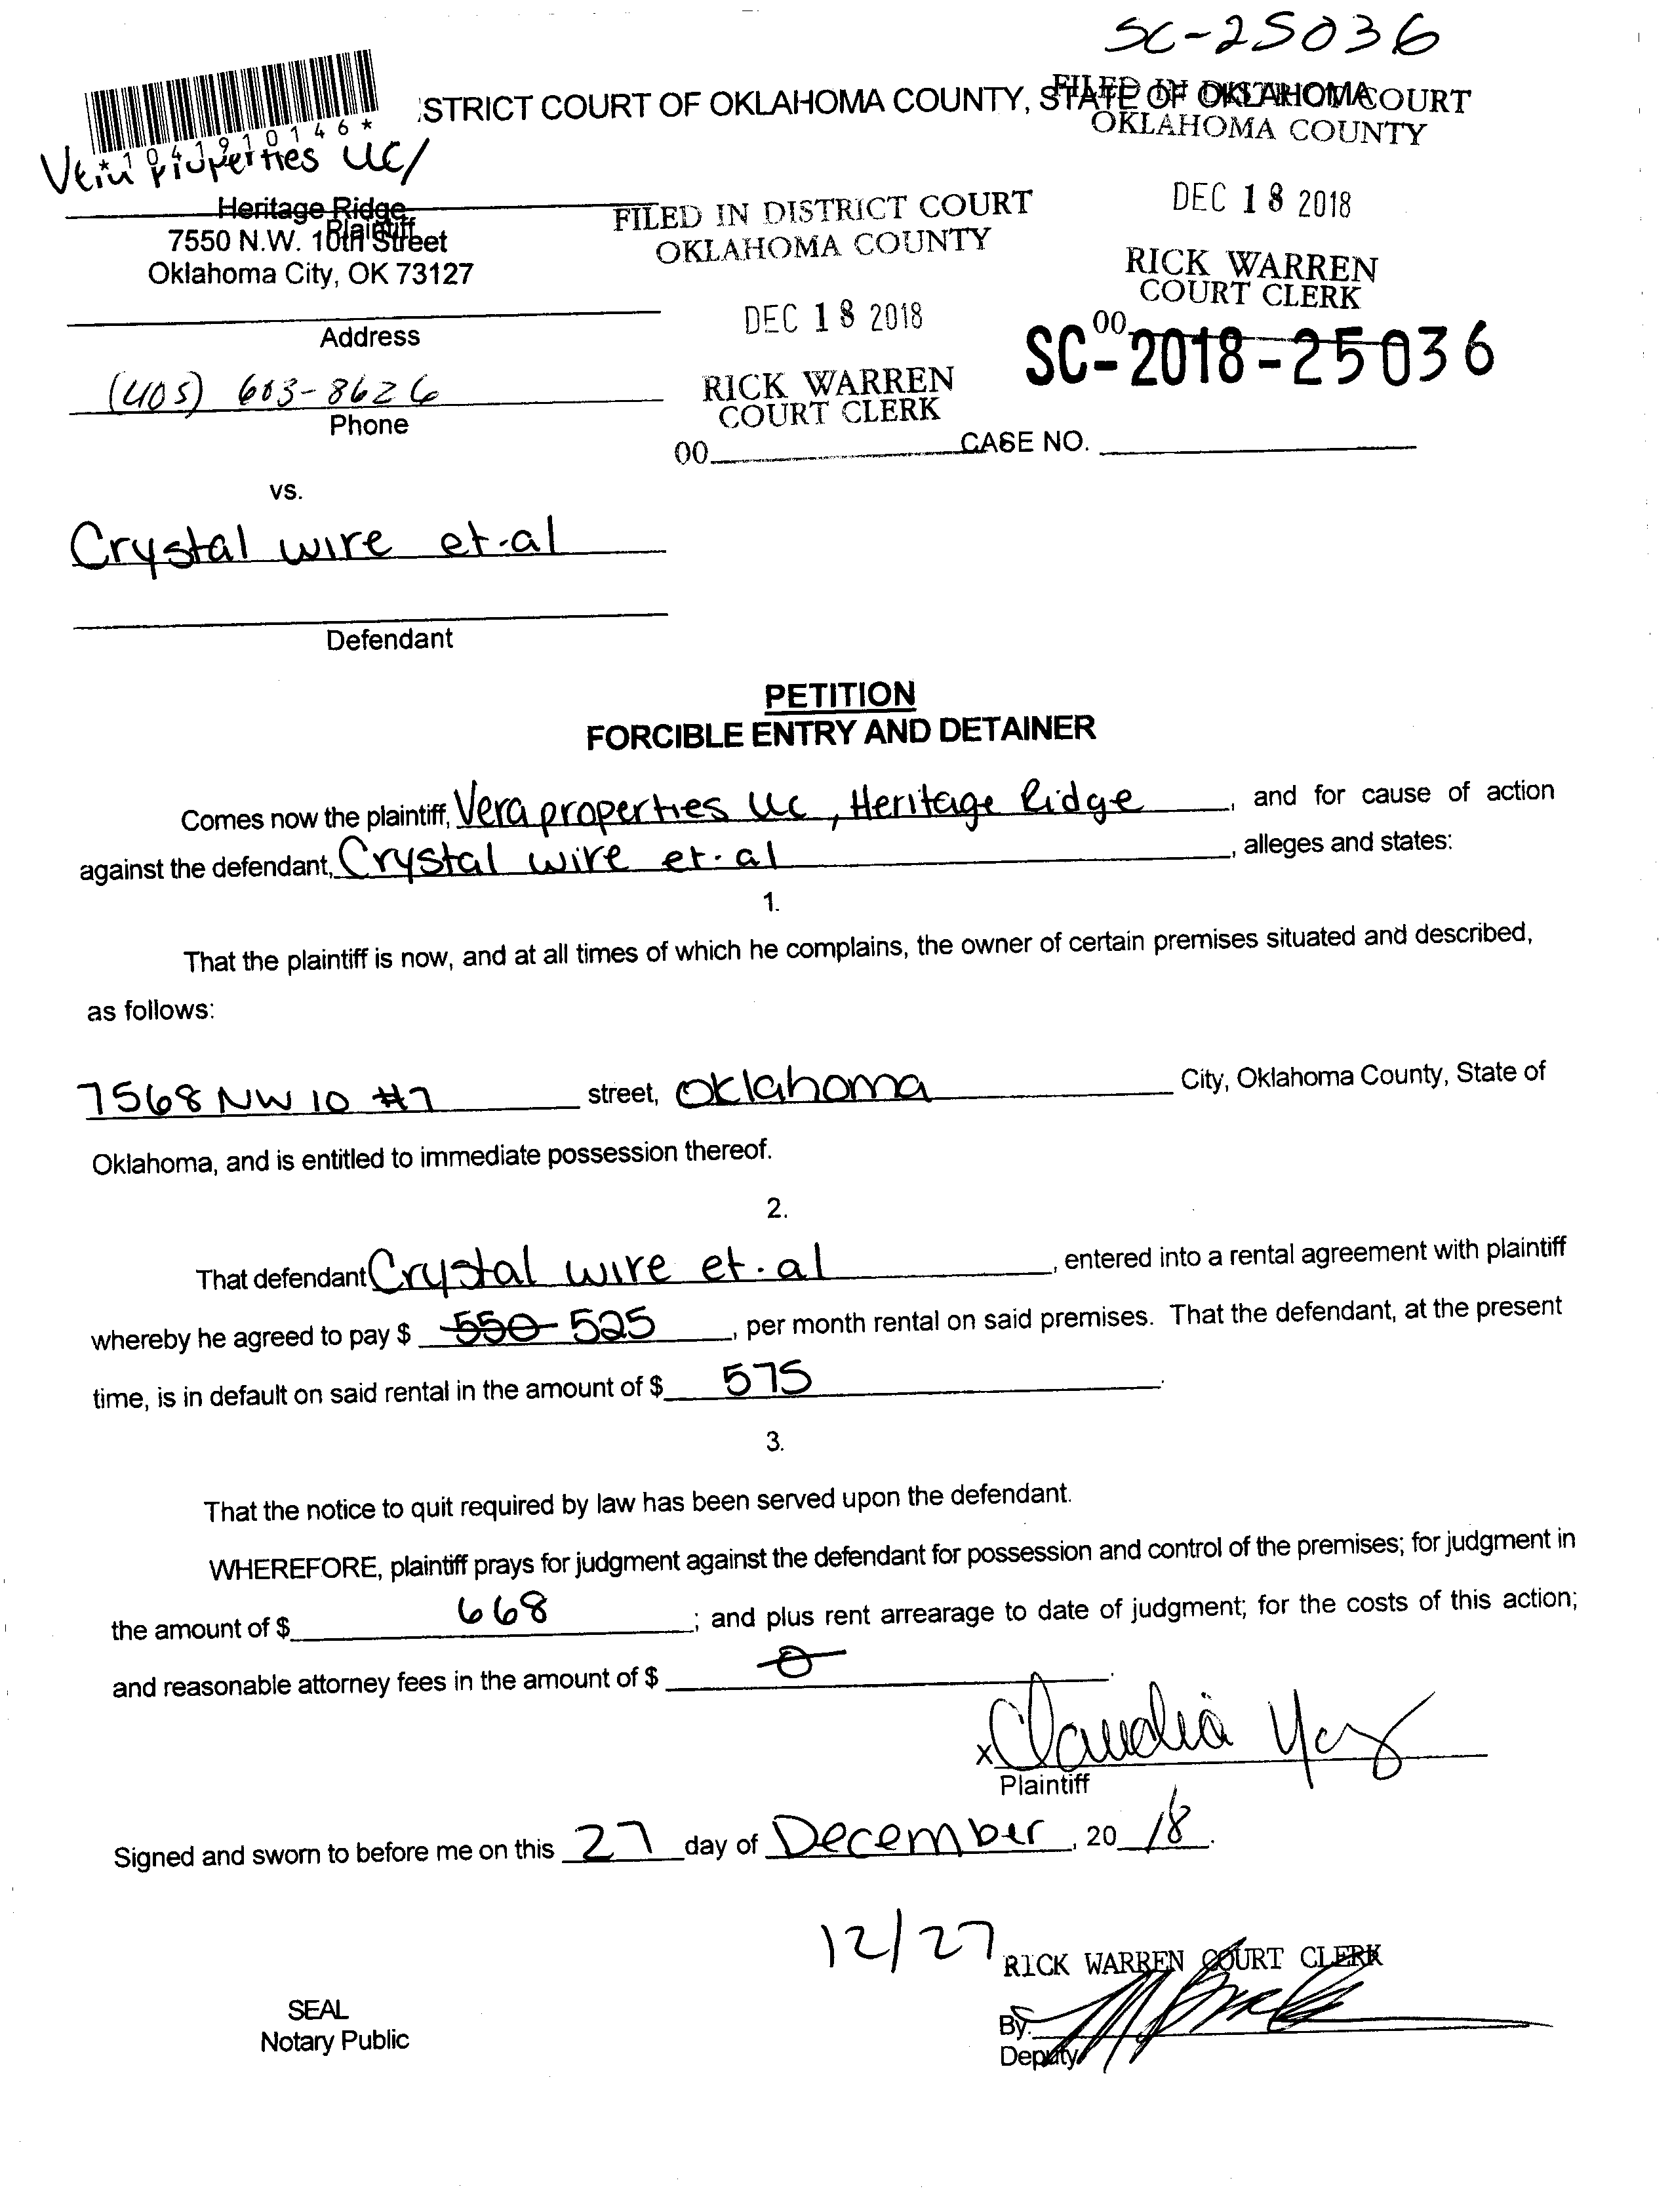 SC-25036
STRICT COURT OF OKLAHOMA COUNTY, STATE OF OKLAHOMA
FILED IN DISTRICT COURT
OKLAHOMA COUNTY
*1041910146*
properties LLC/
Heritage Ridge
Plaintiff
7550 N.W. 10th Street
Oklahoma City, OK 73127
FILED IN DISTRICT COURT
OKLAHOMA COUNTY
DEC 18 2018
RICK WARREN
COURT CLERK
DEC 18 2018
Address
00
SC-2018-25036
(405) 603-8626
Phone
RICK WARREN
COURT CLERK
00 CASE NO.
vs.
Crystal wire et-al
Defendant
PETITION
FORCIBLE ENTRY AND DETAINER
Comes now the plaintiff, Vera properties LLC, Heritage Ridge, and for cause of action
against the defendant, Crystal wire et.al, alleges and states:
1.
That the plaintiff is now, and at all times of which he complains, the owner of certain premises situated and described,
as follows:
7568 NW 10 #7 street, Oklahoma City, Oklahoma County, State of
Oklahoma, and is entitled to immediate possession thereof.
2.
That defendant Crystal wire et.al, entered into a rental agreement with plaintiff
whereby he agreed to pay $ 550 525, per month rental on said premises. That the defendant, at the present
time, is in default on said rental in the amount of $ 575.
3.
That the notice to quit required by law has been served upon the defendant.
WHEREFORE, plaintiff prays for judgment against the defendant for possession and control of the premises; for judgment in
the amount of $ 668; and plus rent arrearage to date of judgment; for the costs of this action;
and reasonable attorney fees in the amount of $ 0.
x Claudia
Plaintiff
Signed and sworn to before me on this 27 day of December, 2018.
12/27
RICK WARREN COURT CLERK
SEAL
Notary Public
By:
Deputy